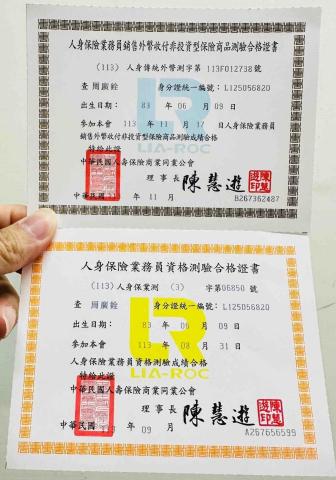 人身保險業務員銷售外幣收付非投資型保險商品測驗合格證書
(113) 人身傳統外幣測字第 113F012738號
查 周廣銓 身分證統一編號：L125056820
出生日期： 83 年 06 月 09 日
參加本會 113 年 11 月 17 日人身保險業務員
銷售外幣收付非投資型保險商品測驗成績合格
特給此證
中華民國人壽保險商業同業公會
LIA-ROC
理事長 陳慧遊
陳慧遊印
中華民國 年 11 月
B267362487
人身保險業務員資格測驗合格證書
(113)人身保業測 (3) 字第06850 號
查 周廣銓 身分證統一編號：L125056820
出生日期： 83 年 06 月 09 日
參加本會 113 年 08 月 31 日
人身保險業務員資格測驗成績合格
特給此證
LIA-ROC
中華民國人壽保險商業同業公會
理事長 陳慧遊
陳慧遊印
中華民國 113 年 09 月
A267656599